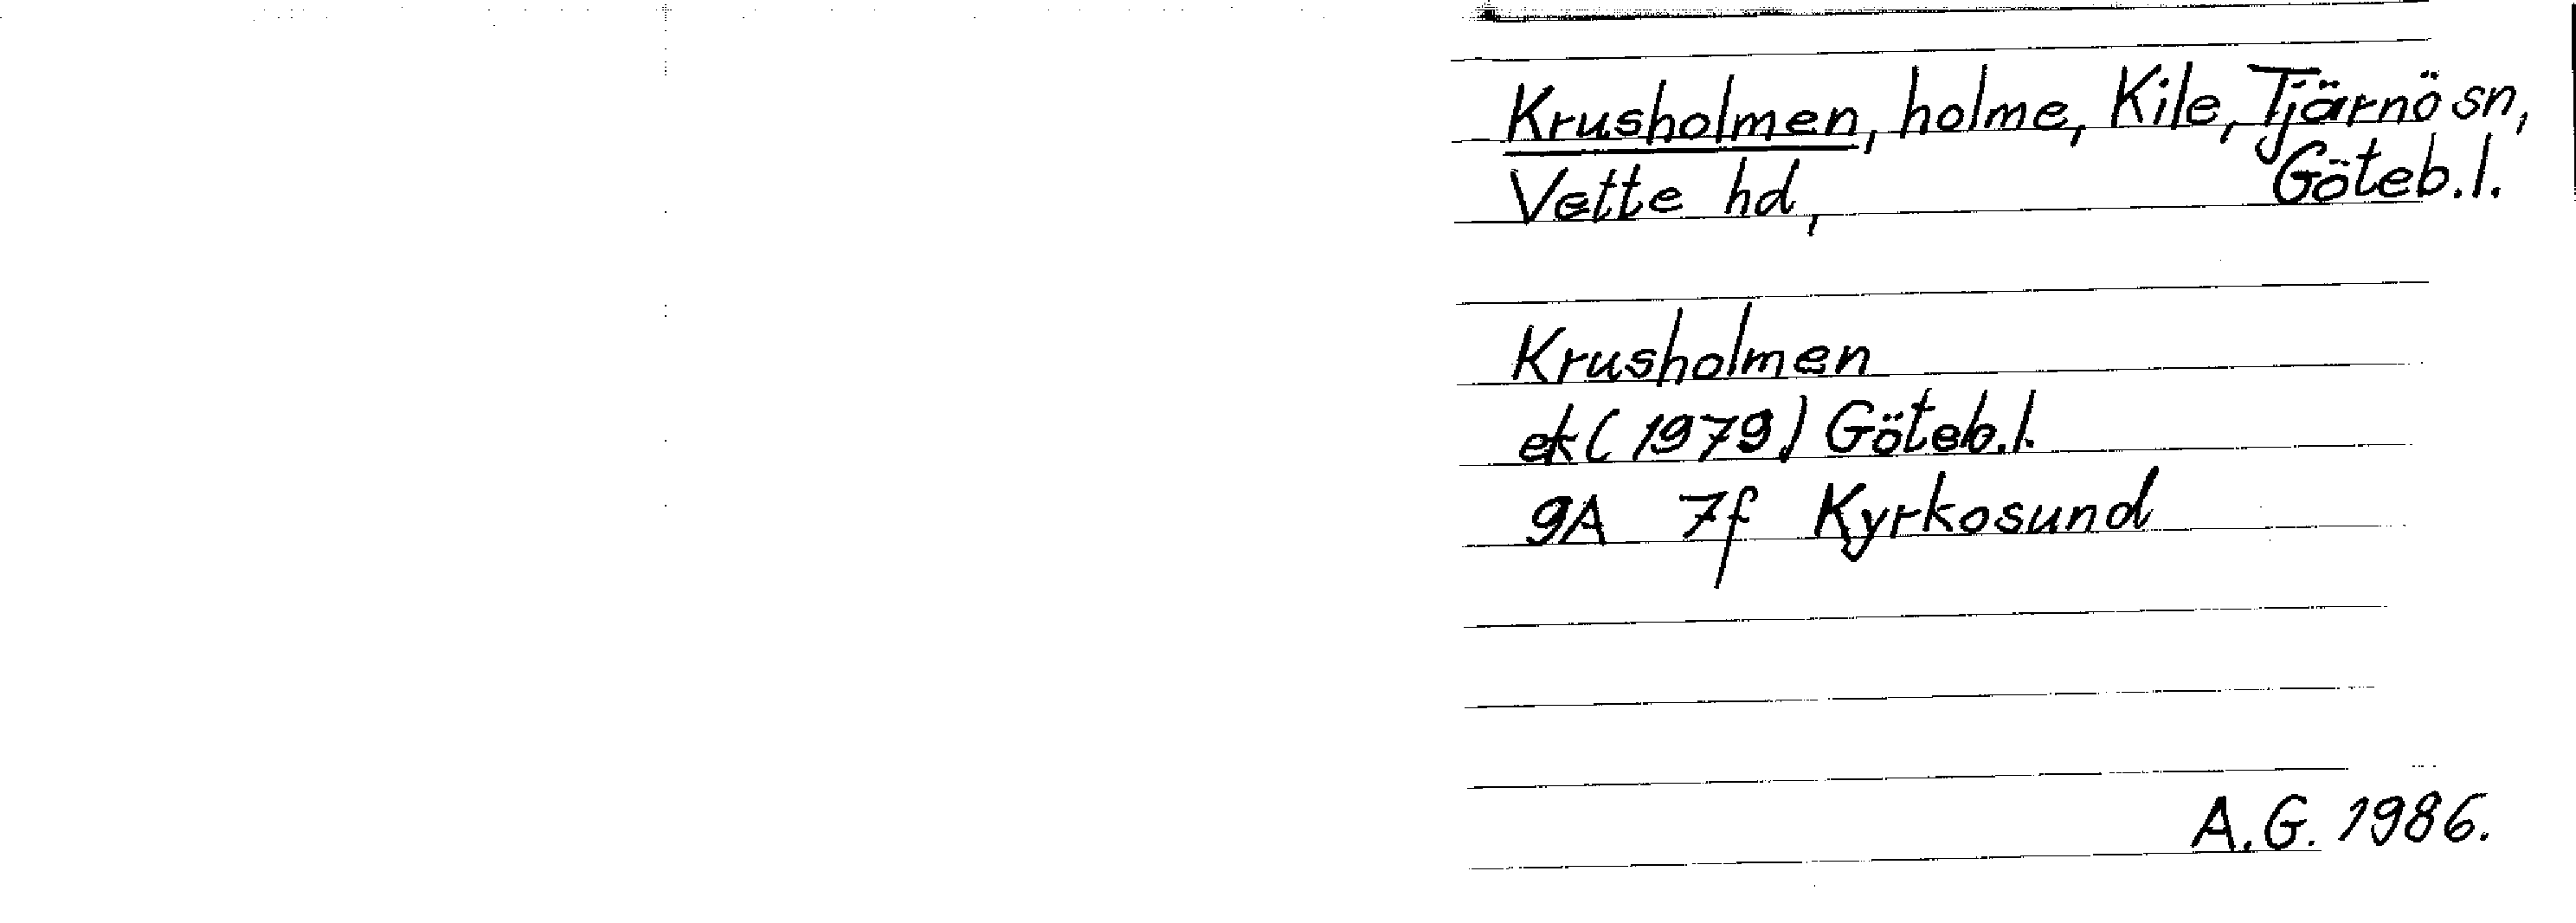 Krusholmen, holme, Kile, Tjärnö sn,
Vette hd, Göteb.l.
Krusholmen
ek (1979) Göteb.l.
9A 7f Kyrkosund
A.G. 1986.